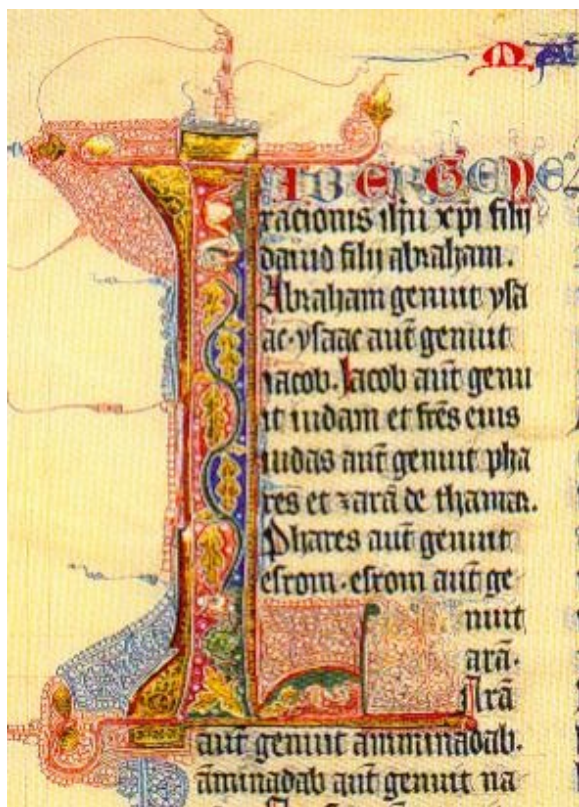 L
IBER GENEZ
racionis ihu xpi filij
dauid filij abraham.
Abraham genuit ysa
ac. ysaac aut̄ genuit
iacob. Iacob aut̄ genu
it iudam et fr̄es eius
iudas aut̄ genuit pha
res et zarā de thamar.
Phares aut̄ genuit
esrom. esrom aut̄ ge
nuit
arā.
Arā
aut̄ genuit amminadab.
āminadab aut̄ genuit na